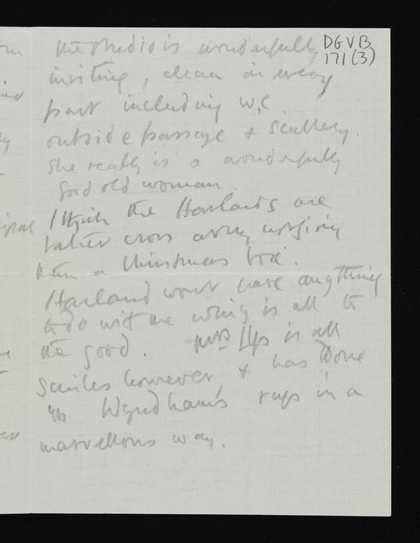 DGVB
171(3)
the studio is wonderfully
inviting, clean in every
part including W.C
outside passage & scullery.
She really is a wonderfully
good old woman.
I think the Harlands are
rather cross at my not giving
them a Christmas box.
Harland wont have anything
to do with me which is all to
the good. Mrs is all
smiles however, & has done
up Wyndham's rugs in a
marvellous way.